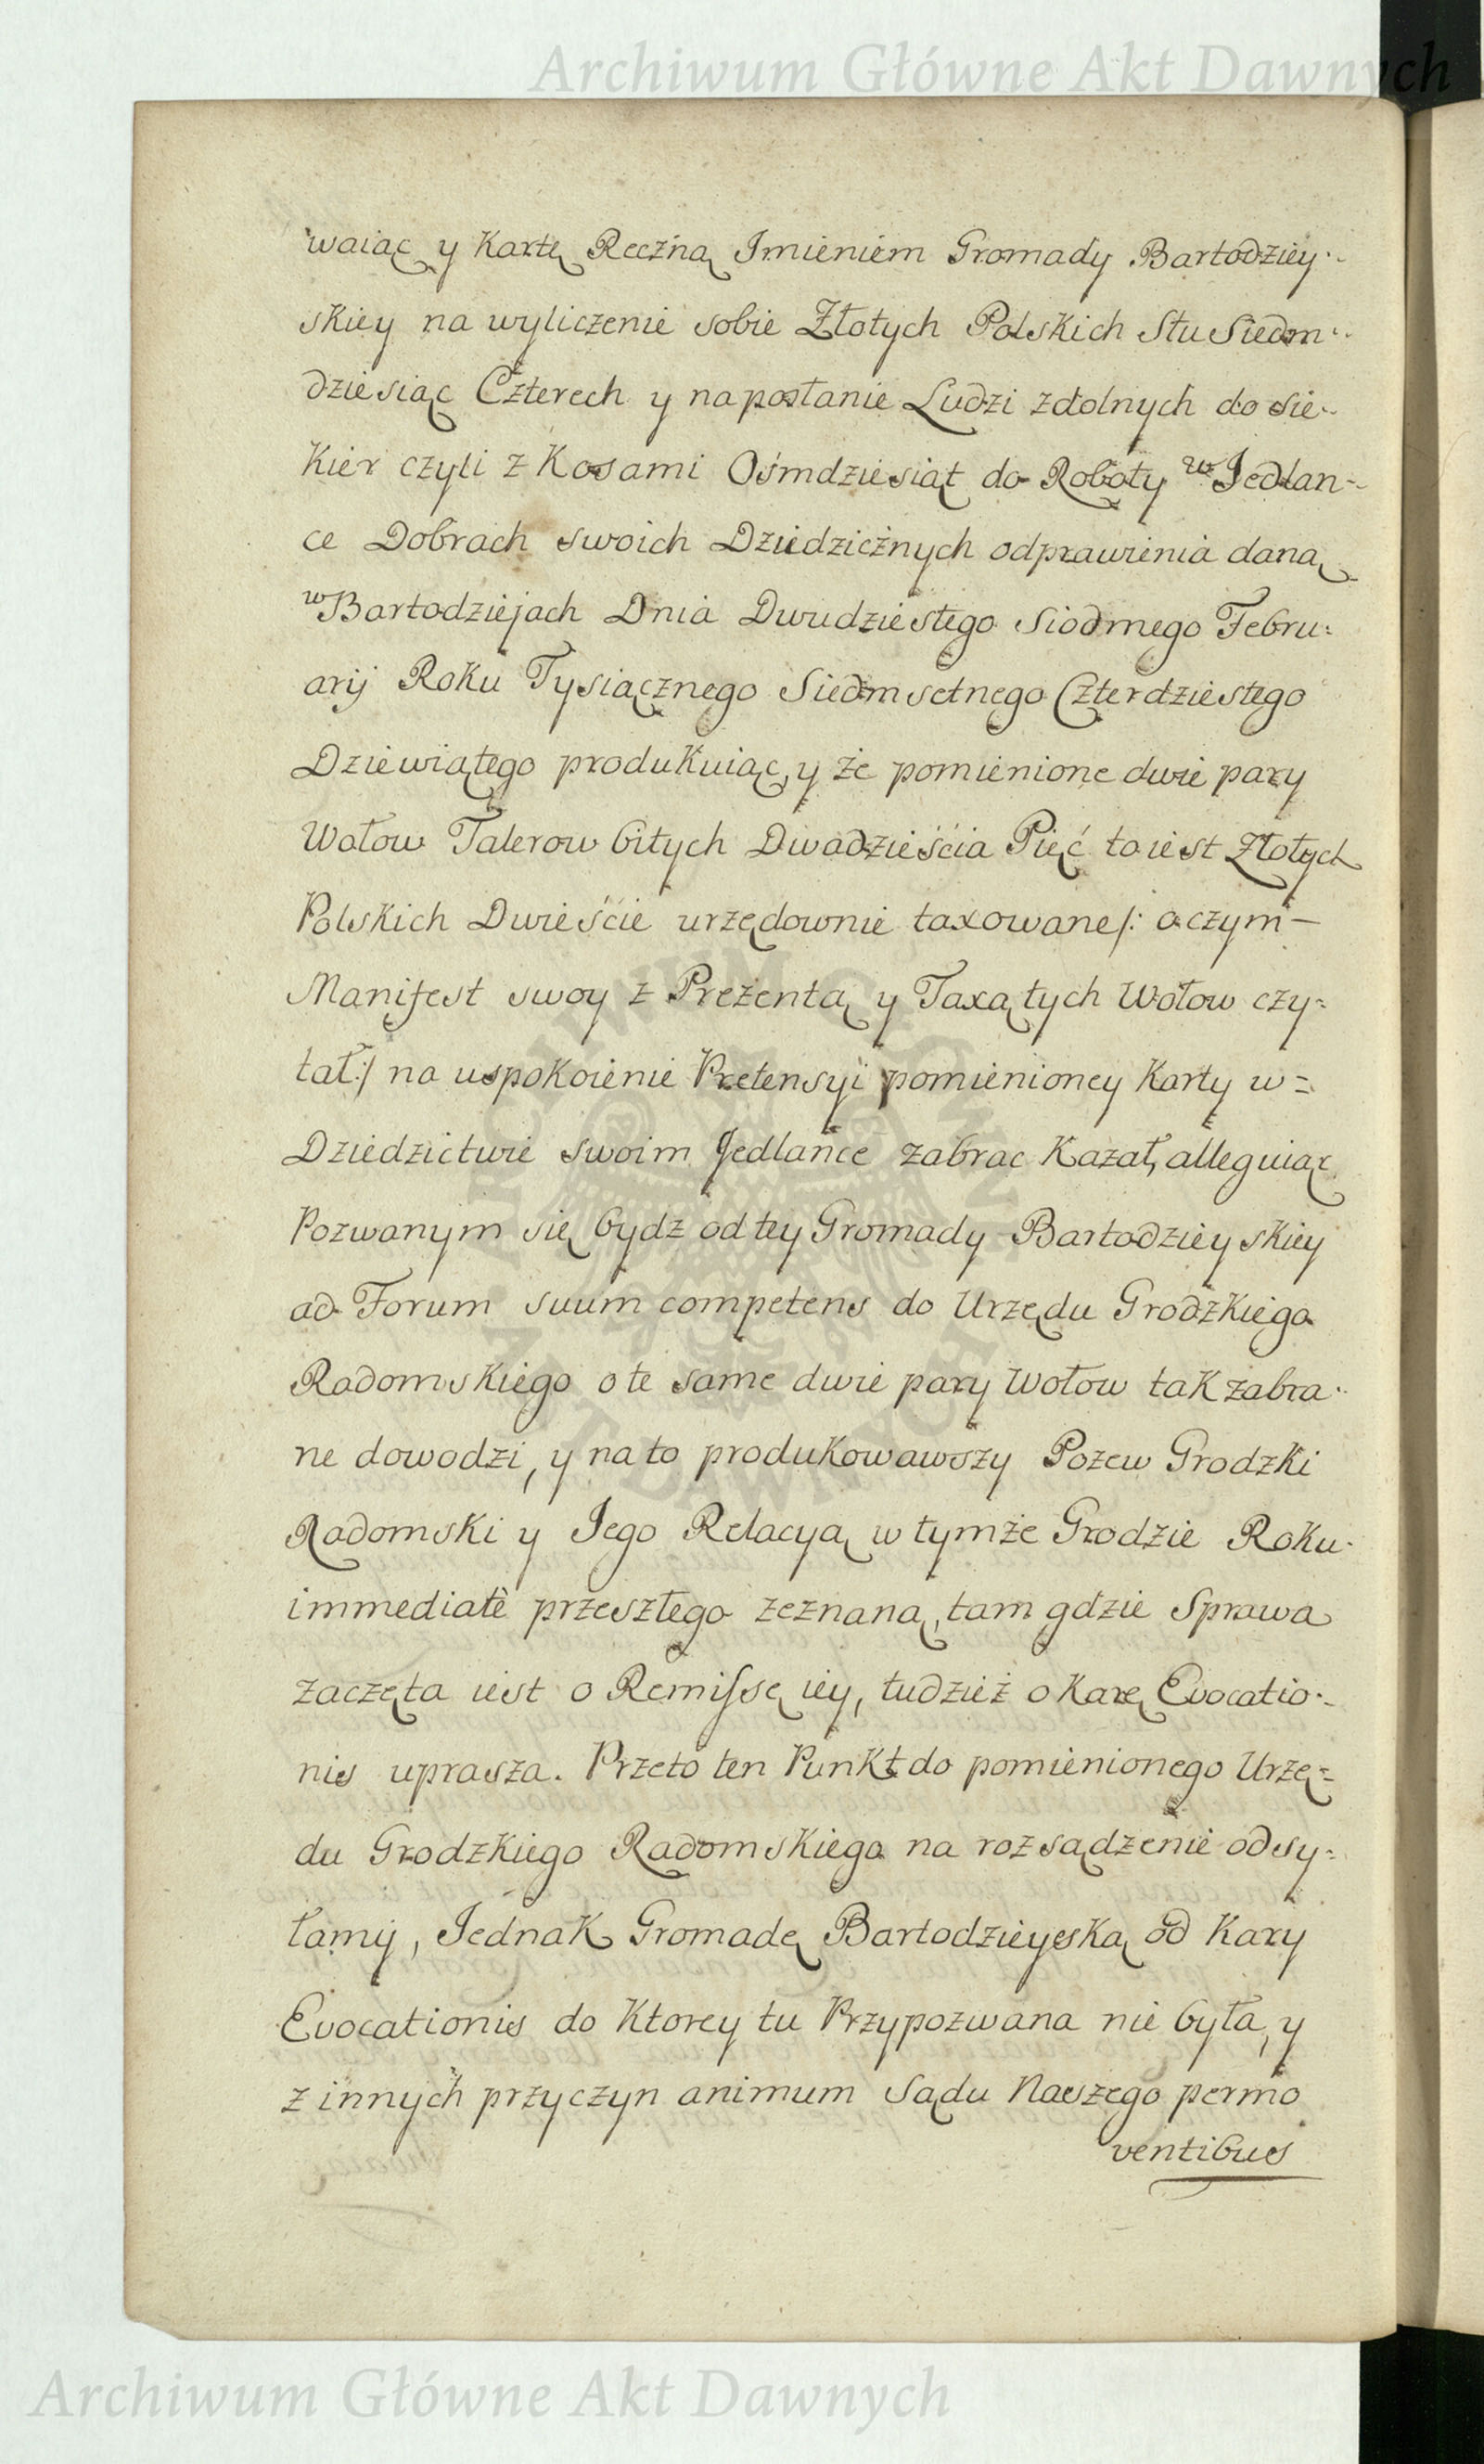 Archiwum Główne Akt Dawnych
waiąc y Kartę Ręczną Imieniem Gromady Bartodziey-
skiey na wyliczenie sobie Złotych Polskich Stu Siedm-
dziesiąc Czterech y na posłanie Ludzi zdolnych do sie-
kier czyli z Kosami Ośmdziesiąt do Roboty w Jedlan-
ce Dobrach swoich Dziedzicznych odprawienia daną
w Bartodziejach Dnia Dwudziestego Siodmego Febru-
arij Roku Tysiącznego Siedmsetnego Czterdziestego
Dziewiątego produkuiąc, y że pomienione dwie pary
Wołow Talerow bitych Dwadzieścia Pięć to iest Złotych
Polskich Dwieście urzędownie taxowane /: o czym –
Manifest swoy z Prezentą y Taxą tych Wołow czy-
tał :/ na uspokoienie Pretensyi pomienioney Karty w =
Dziedzictwie swoim Jedlance zabrac Kazał, alleguiąc
Pozwanym się bydz od tey Gromady Bartodzieyskiey
ad Forum suum competens do Urzędu Grodzkiego
Radomskiego o te same dwie pary Wołow tak zabra-
ne dowodzi, y na to produkowawszy Pozew Grodzki
Radomski y Jego Relacyą w tymże Grodzie Roku
immediatè przeszłego zeznaną, tam gdzie Sprawa
zaczęta iest o Remissę iey, tudzież o karę Evocatio-
nis uprasza. Przeto ten Punkt do pomienionego Urzę-
du Grodzkiego Radomskiego na rozsądzenie odsy-
łamy, Jednak Gromadę Bartodzieyską od Kary
Evocationis do Ktorey tu Przypozwana nie była, y
z innych przyczyn animum Sądu Naszego permo
ventibus
Archiwum Główne Akt Dawnych